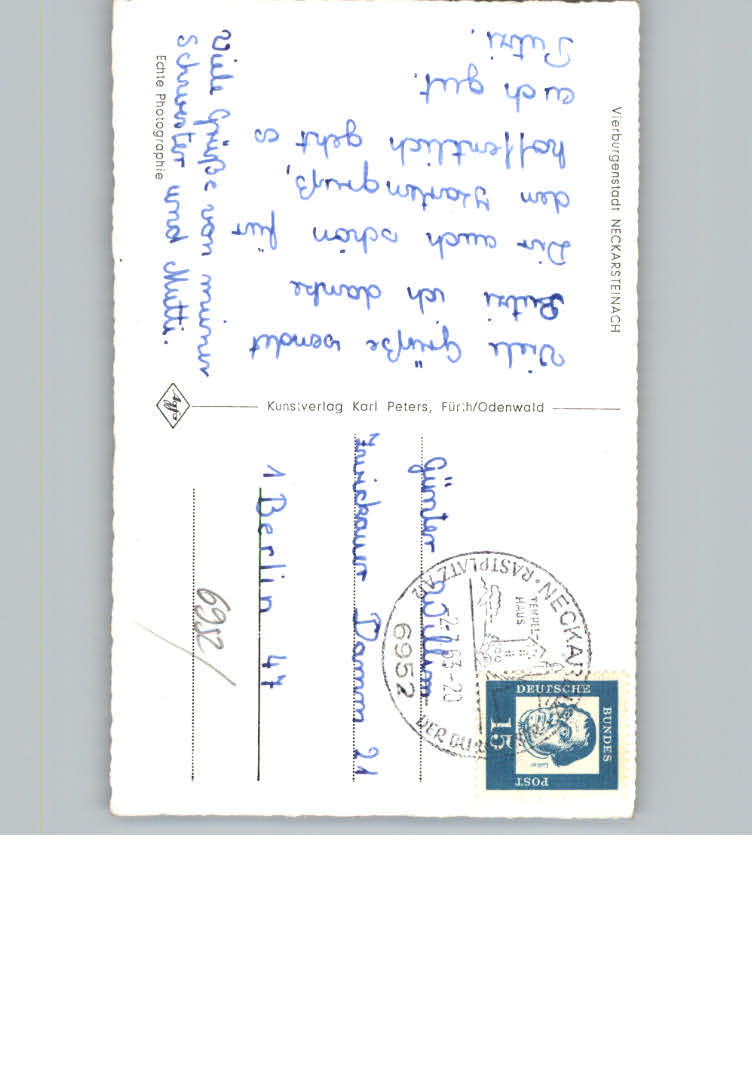 Vierburgenstadt NECKARSTEINACH
Viele Grüße sendet
Putzi ich danke
Dir auch schön für
den Kartengruß,
hoffentlich geht es
euch gut.
Putzi.
Viele Grüße von meiner
Schwester und Mutti.
Echte Photographie
Agfa
Kunstverlag Karl Peters, Fürth/Odenwald
Günter
Zwickauer Damm 21
1 Berlin 47
6982
RASTPLATZ AN
TEMPEL-
HAUS
-2.7.63-20
6952
DEUTSCHE
BUNDES
POST
15
Luther